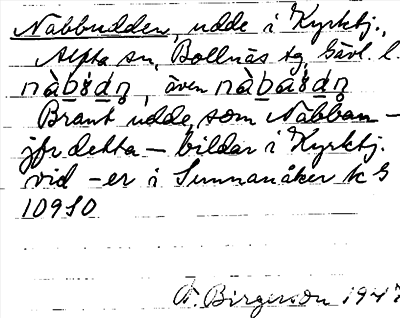 Nabbudden, udde i Kyrktj.,
Alfta sn, Bollnäs tg, Gävl. l.
även
Brant udde, som Nabban –
jfr detta – bildar i Kyrktj.
vid – er i Sunnanåker k S
10980
F. Birgerson 1947